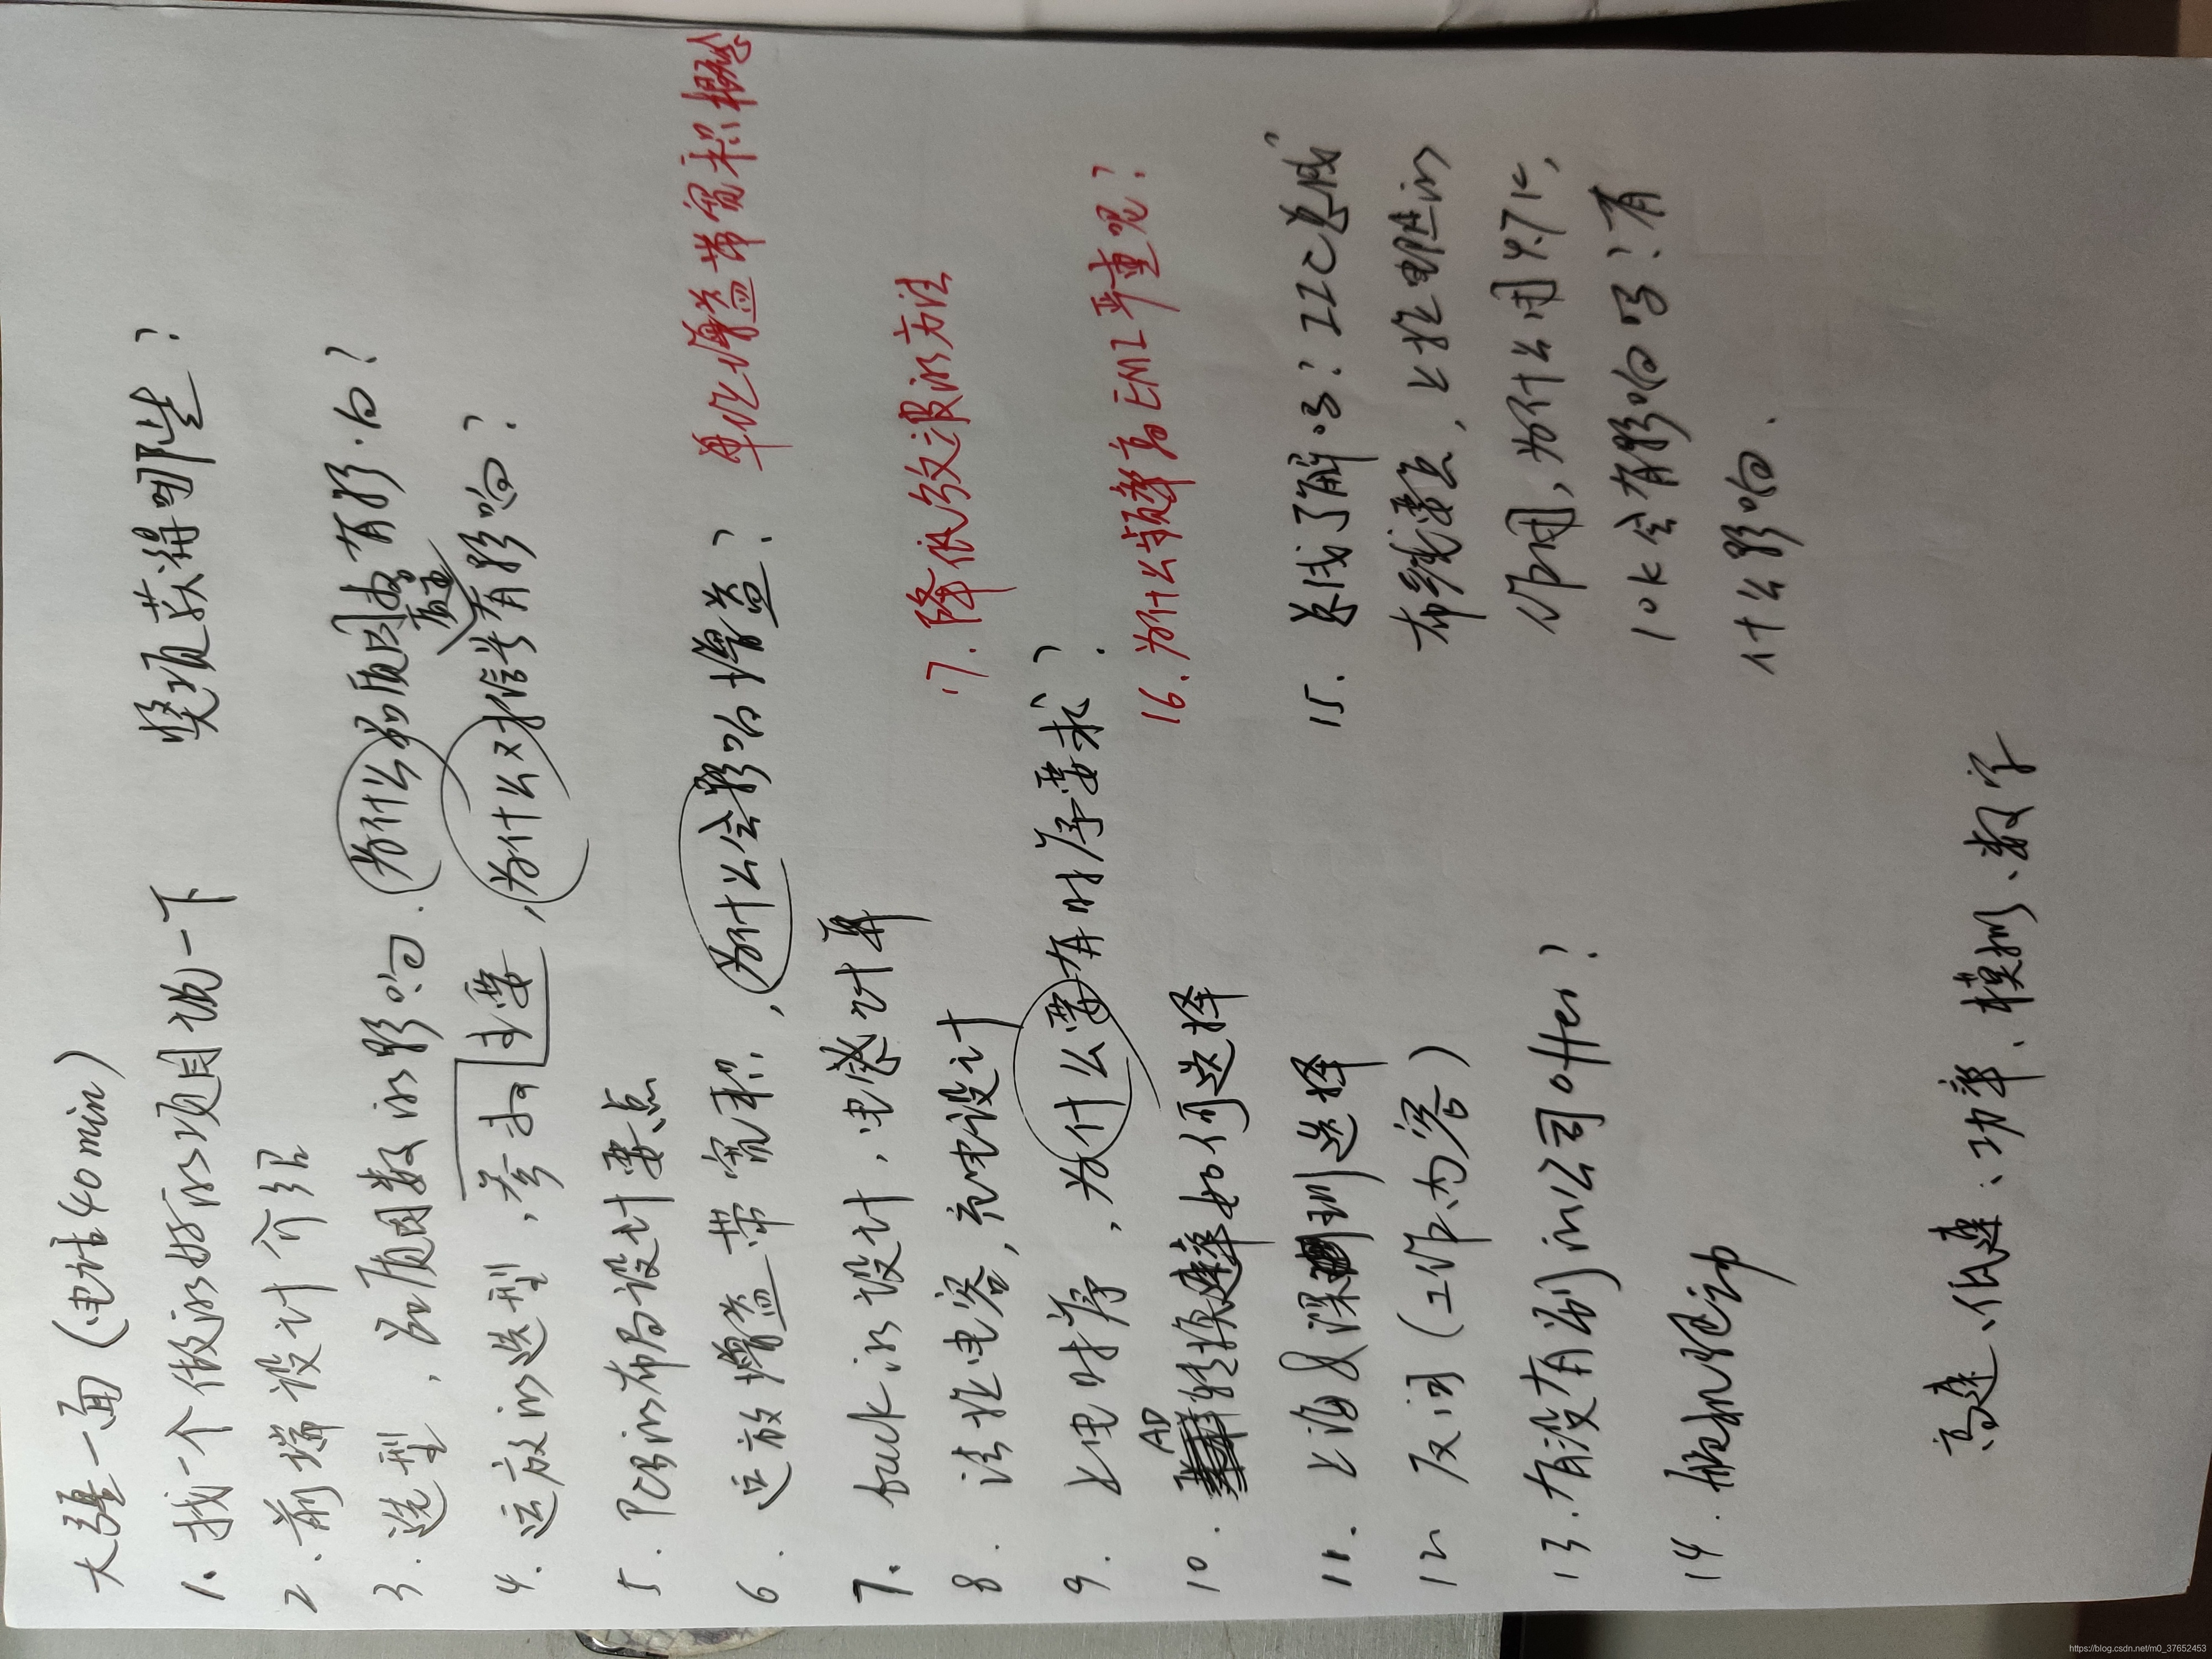 大疆一面（电话40min）
1. 找一个做的好的项目说一下 奖项获得哪些？
2. 前端设计介绍
3. 选型，品质因数的影响. 为什么品质因素有影响？
4. 运放的选型，参数 主要，为什么对信号有影响？
5. PCB的布局设计要点
6. 运放增益带宽积，为什么会影响增益？ 单位增益带宽积概念
7. buck的设计，电感计算
17. 降低纹波的方法
8. 法拉电容，充电设计
9. 上电时序，为什么要有时序要求？
16. 为什么频率高EMI严重呢？
10. AD转换速率如何选择
11. 上海及深圳选择
12 反问（工作内容）
13. 有没有别的公司offer？
14.
15. 总线了解吗？IIC总线
布线要点，上拉电阻的
作用，为什么用4.7K，
10K会有影响吗？有
什么影响、
高速、低速：功率、模拟、数字
https://blog.csdn.net/m0_37652453